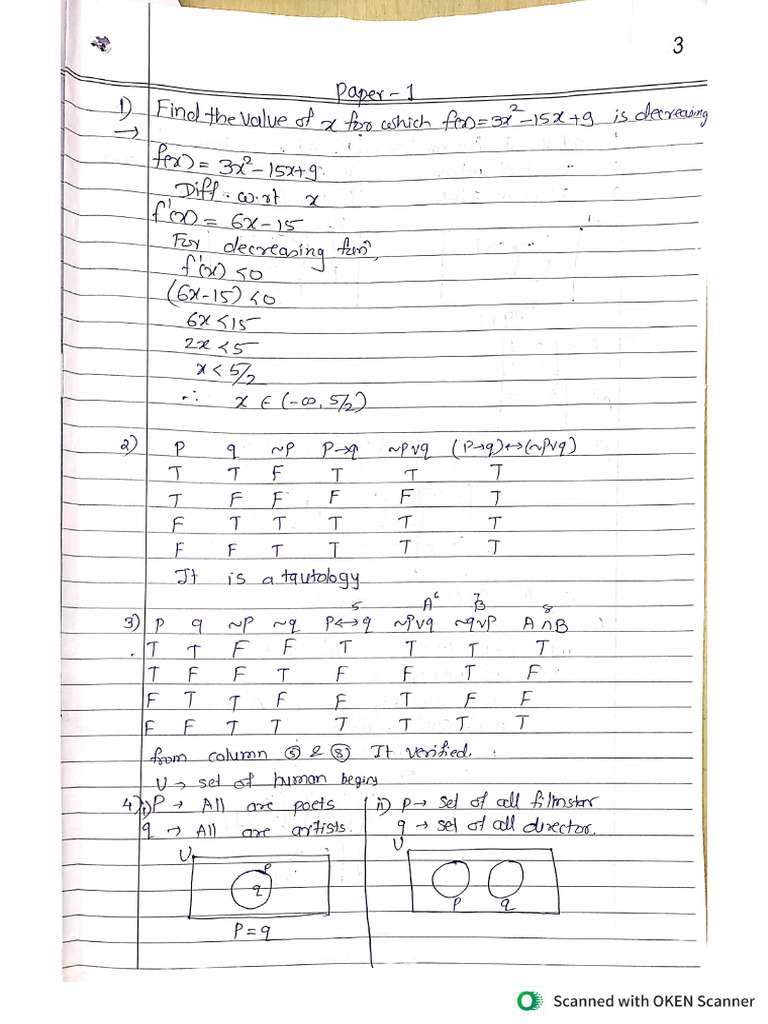 3
Paper - 1
1) Find the value of x for which f(x) = 3x² - 15x + 9 is decreasing
→
f(x) = 3x² - 15x + 9.
Diff. w.r.t x
f'(x) = 6x - 15
For decreasing funⁿ,
f'(x) < 0
(6x-15) < 0
6x < 15
2x < 5
x < 5/2
∴ x ∈ (-∞, 5/2)
2) P q ~P P→q ~P∨q (P→q)↔(~P∨q)
T T F T T T
T F F F F T
F T T T T T
F F T T T T
It is a tautology
5 A⁶ 7 8
3) P q ~P ~q P↔q ~P∨q ~q∨P A∩B
T T F F T T T T
T F F T F F T F
F T T F F T F F
F F T T T T T T
from column ⑤ & ⑧ It verified.
U → set of human begins
4) i) P → All are poets ii) P → set of all filmstar
q → All are artists. q → set of all director.
U U
P
q
P q
P = q
Scanned with OKEN Scanner